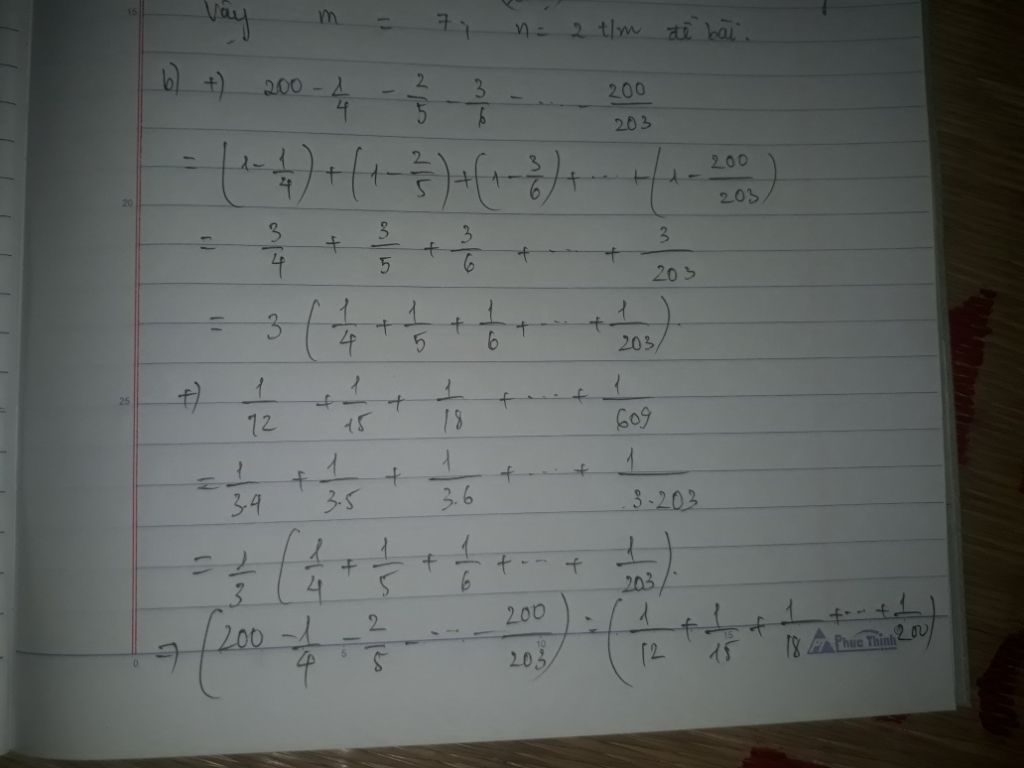 Vậy m = 7; n = 2 t/m đề bài.
b) +) 200 - 1/4 - 2/5 - 3/6 - ... - 200/203
= (1 - 1/4) + (1 - 2/5) + (1 - 3/6) + ... + (1 - 200/203)
= 3/4 + 3/5 + 3/6 + ... + 3/203
= 3 (1/4 + 1/5 + 1/6 + ... + 1/203).
+) 1/12 + 1/15 + 1/18 + ... + 1/609
= 1/3.4 + 1/3.5 + 1/3.6 + ... + 1/3.203
= 1/3 (1/4 + 1/5 + 1/6 + ... + 1/203).
=> (200 - 1/4 - 2/5 - ... - 200/203) : (1/12 + 1/15 + 1/18 + ... + 1/200)
Phuc Thinh
15
20
25
0 5 10 15